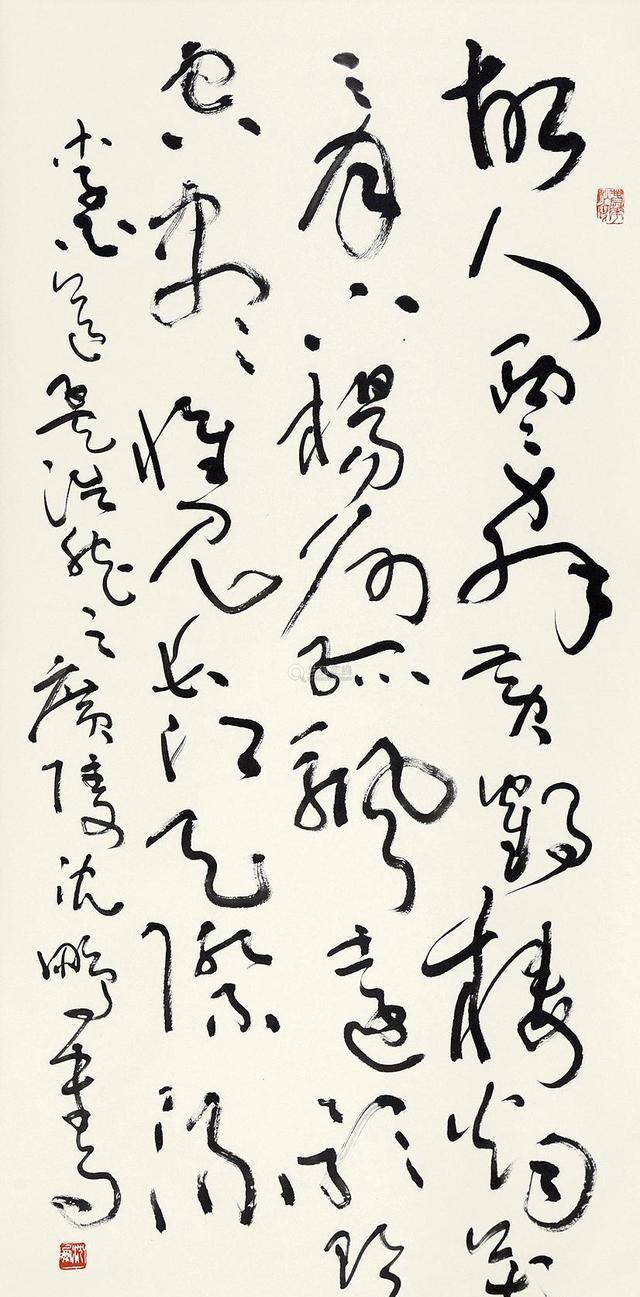 故人西辭黄鶴樓烟花
三月下揚州孤帆遠影碧
空盡惟見長江天際流
李白送孟浩然之廣陵沈鵬書